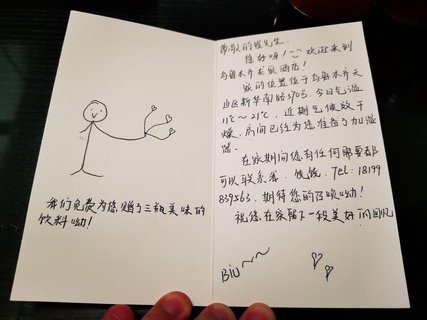 我们免费为您赠了三瓶美味的
饮料呦!
尊敬的崔先生:
您好呀!~欢迎来到
乌鲁木齐龙殿酒店!
家的位置位于乌鲁木齐天
山区新华南路370号.今日气温
11℃~21℃,近期气候较干
燥.房间已经为您准备了加湿
器.
在家期间您有任何需要都
可以联系我.Tel:18199
839563.期待您的召唤呦!
祝您在家留下一段美好的回忆
Biu~~